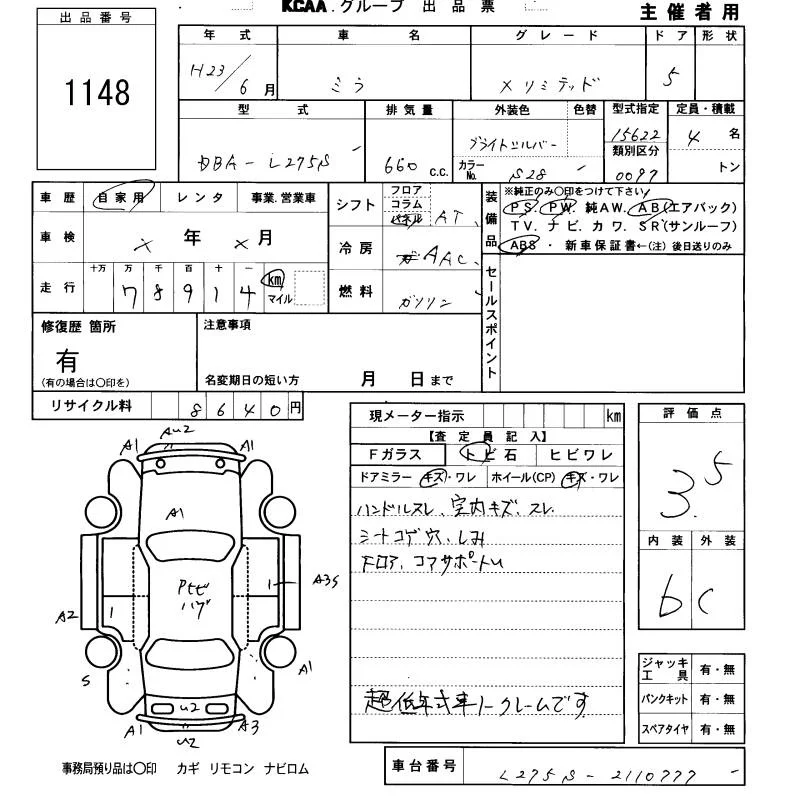 KCAA.グループ 出品票
主催者用
出品番号
1148
年式 車名 グレード ドア 形状
H23/6月 ミラ Xリミテッド 5
型式 排気量 外装色 色替 型式指定 定員・積載
DBA-L275S 660 c.c. ブライトシルバー 15622 4名
カラーNo. S28 類別区分 0097 トン
車歴 自家用 レンタ 事業.営業車
シフト フロア コラム パネル AT
装備品
※純正のみ〇印をつけて下さい
PS. PW. 純AW. AB(エアバック)
TV. ナビ. カワ. SR(サンルーフ)
ABS・新車保証書←(注)後日送りのみ
車検 × 年 × 月
冷房 AAC
走行 十万 万 千 百 十 一
78914 km マイル
燃料 ガソリン
セールスポイント
修復歴 箇所
有
(有の場合は〇印を)
注意事項
名変期日の短い方 月 日まで
リサイクル料 8640円
現メーター指示 km
【査定員記入】
Fガラス トビ石 ヒビワレ
ドアミラー キズ・ワレ ホイール(CP) キズ・ワレ
ハンドルスレ、室内キズ、スレ
シートコゲ穴、しみ
Fロア、コアサポートU
超低年式車ノークレームです
評価点
3.5
内装 外装
b C
ジャッキ工具 有・無
パンクキット 有・無
スペアタイヤ 有・無
A1 AU2 A1
A1
Pトビ
ハゲ
1 1
A3S
A2
S A1
U2
A1 U2 A3
事務局預り品は〇印 カギ リモコン ナビロム
車台番号 L275S-2110777